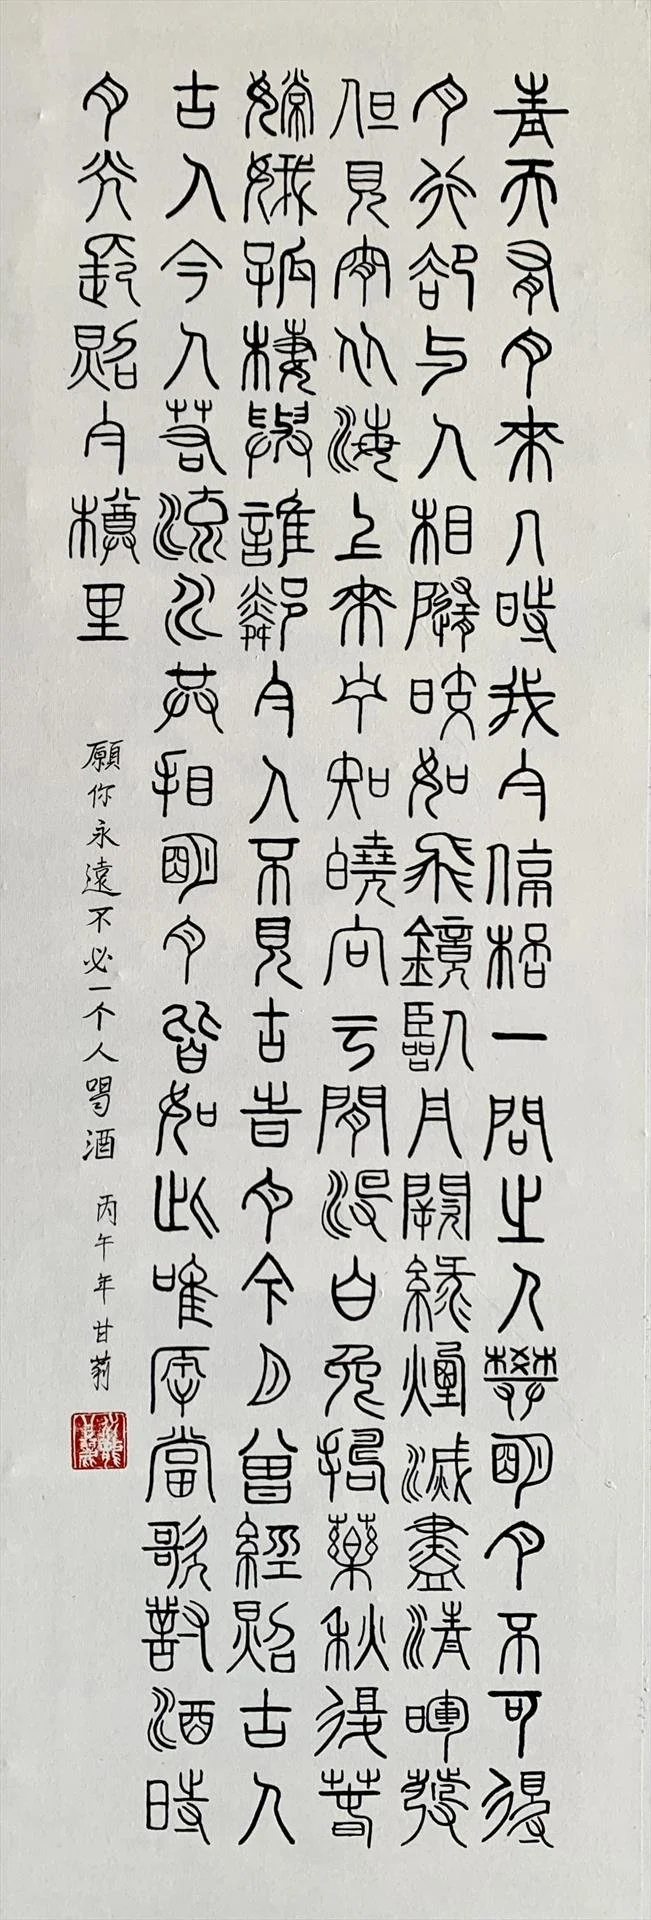 青天有月來几時我今停桮一問之人攀明月不可得
月行卻与人相隨皎如飛鏡臨丹闕綠煙滅盡清暉發
但見宵从海上來寧知曉向云閒沒白兔擣藥秋復春
嫦娥孤棲與誰鄰今人不見古昔月今月曾經照古人
古人今人若流水共看明月皆如此唯願當歌對酒時
月光長照今樽里
願你永遠不必一个人喝酒
丙午年甘莉